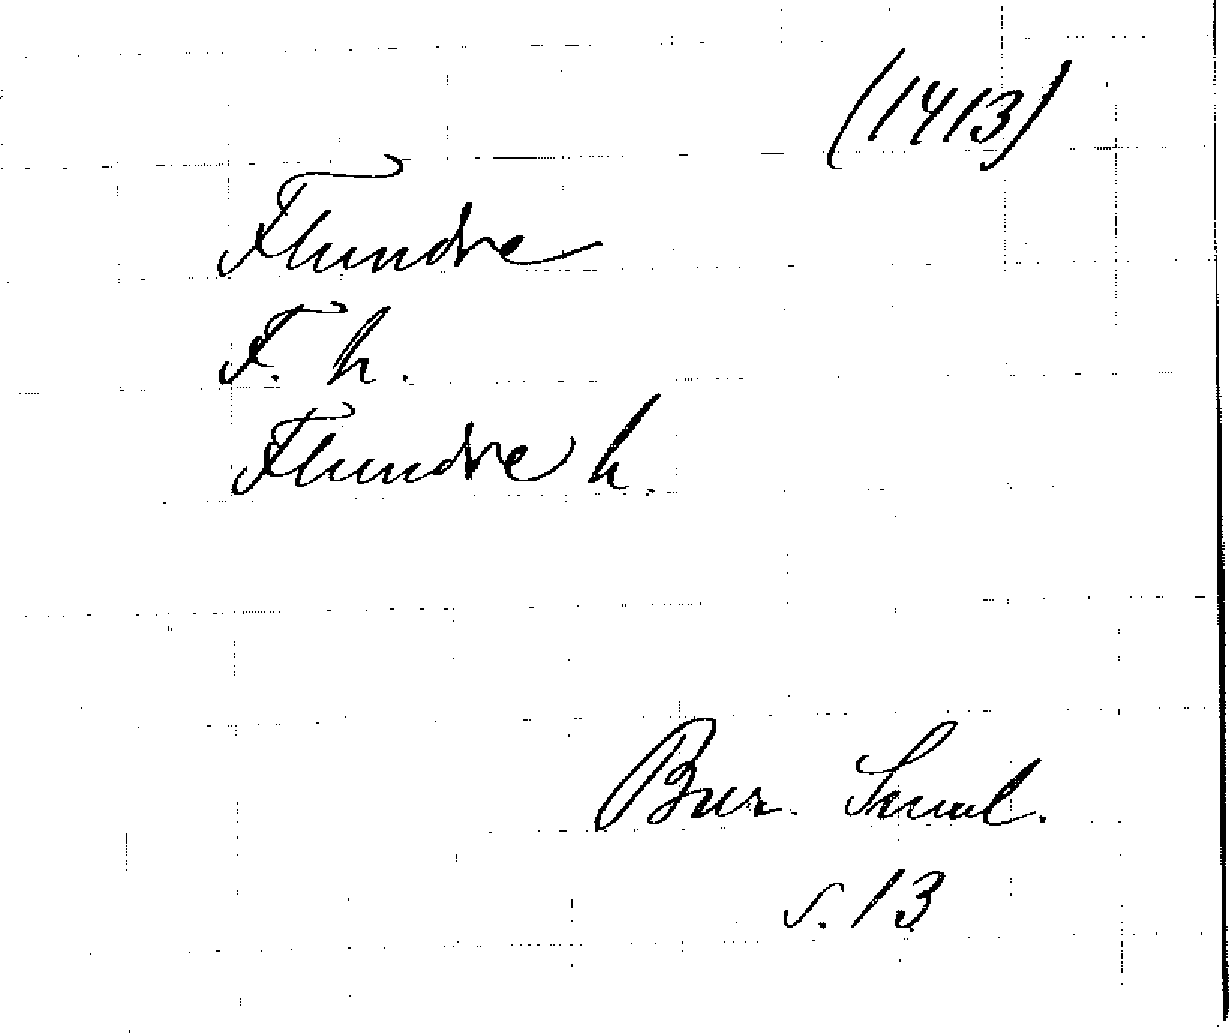 (1413)
Flundre
F. h.
Flundre h.
Brus. Smål.
s. 13